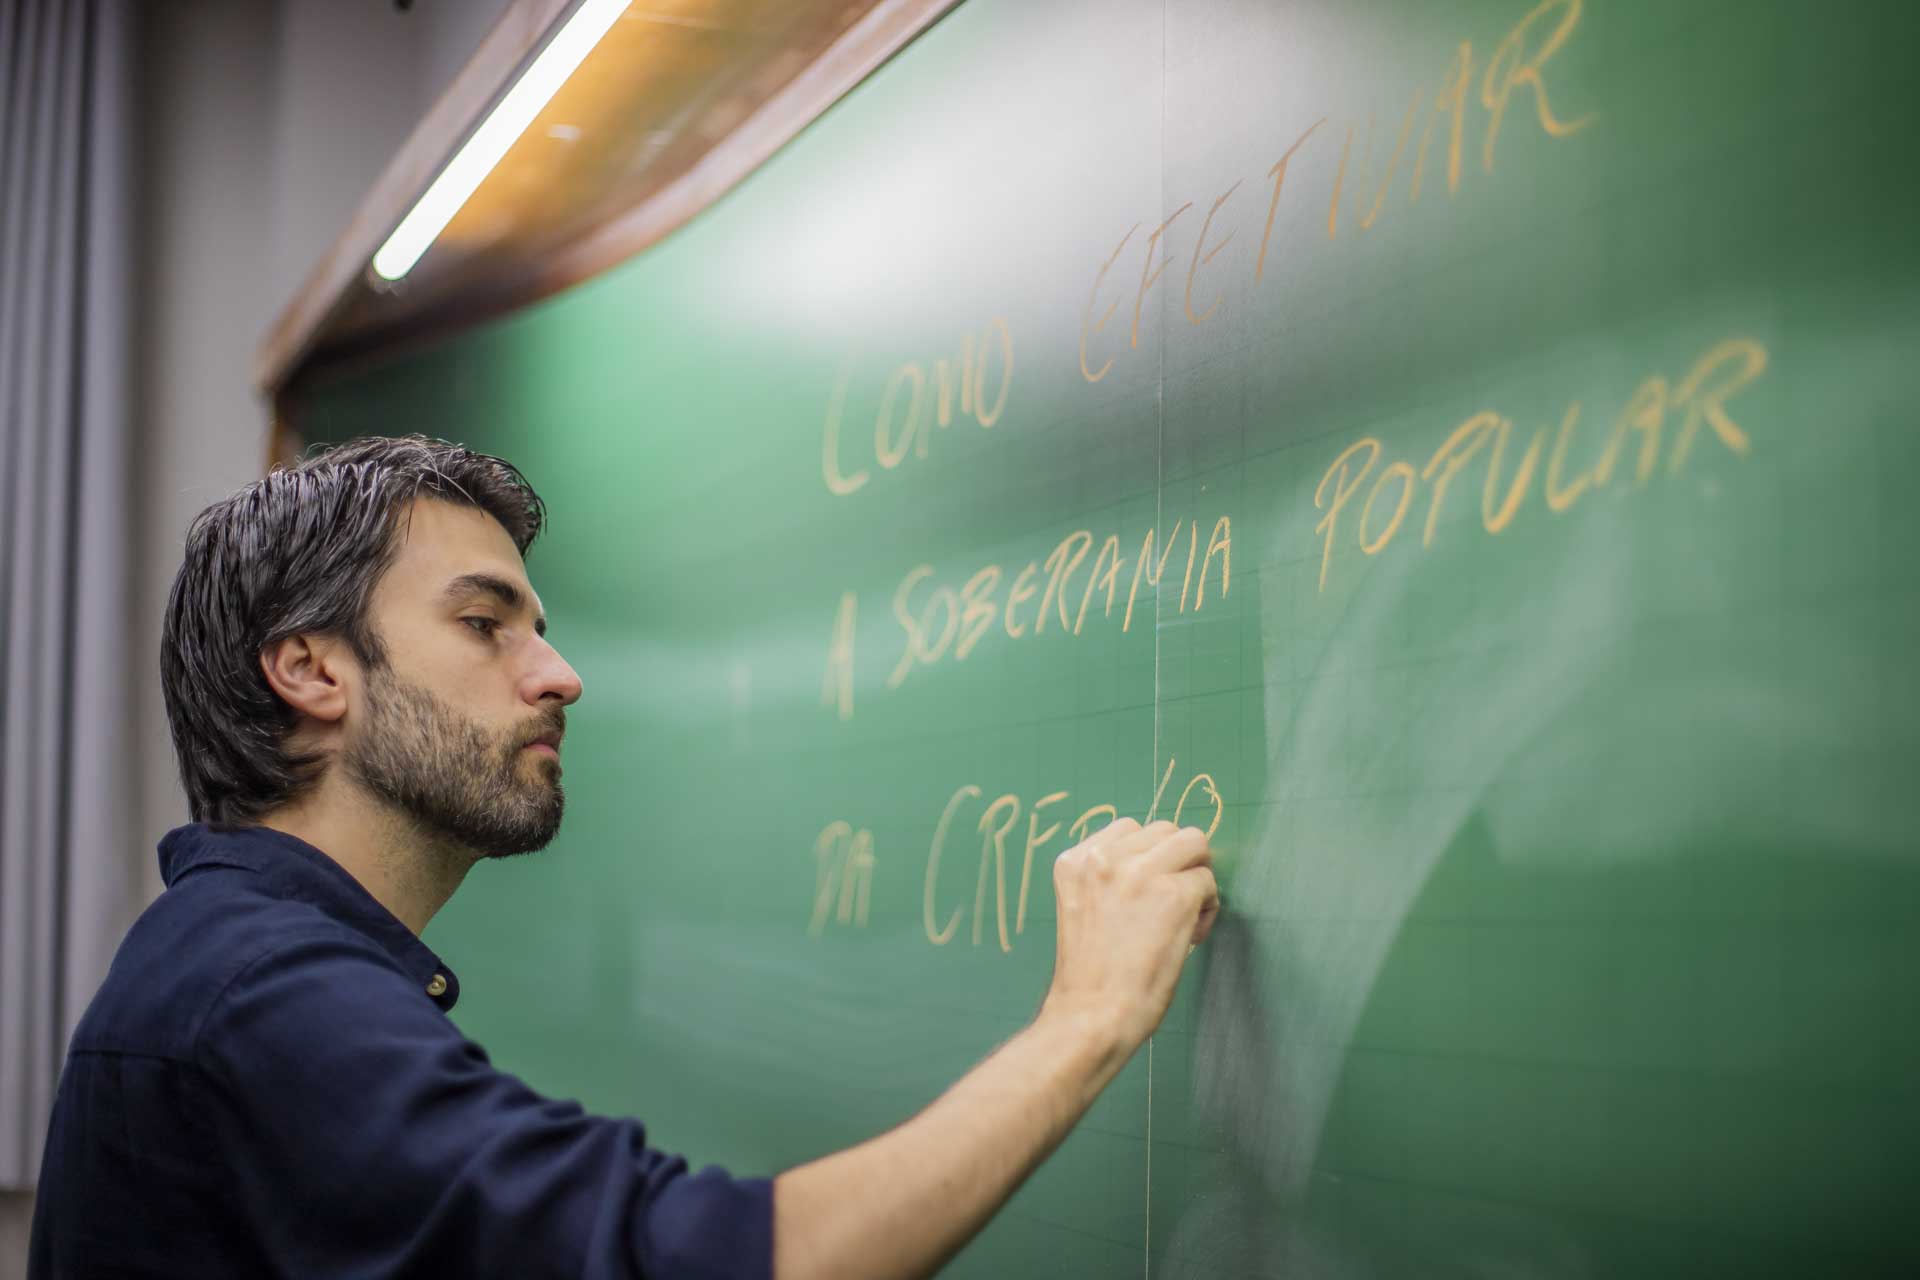 COMO EFETIVAR
A SOBERANIA POPULAR
DA